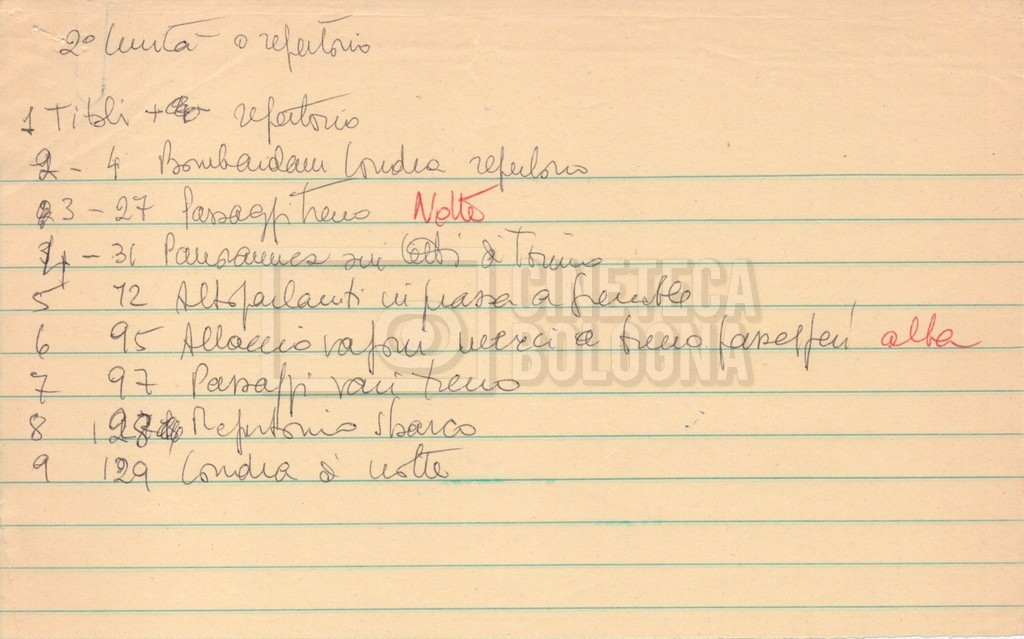 2° Unità o repertorio
1 Titoli + repertorio
2 - 4 Bombardam Londra repertorio
3 - 27 Passaggi treno Notte
4 - 31 Panoramica sui tetti di Torino
5 72 Altoparlanti in piazza a Grenoble
6 95 Allaccio vagoni merci a treno passeggeri alba
7 97 Passaggi vari treno
8 128 Repertorio Sbarco
9 129 Londra di notte
CINETECA
BOLOGNA